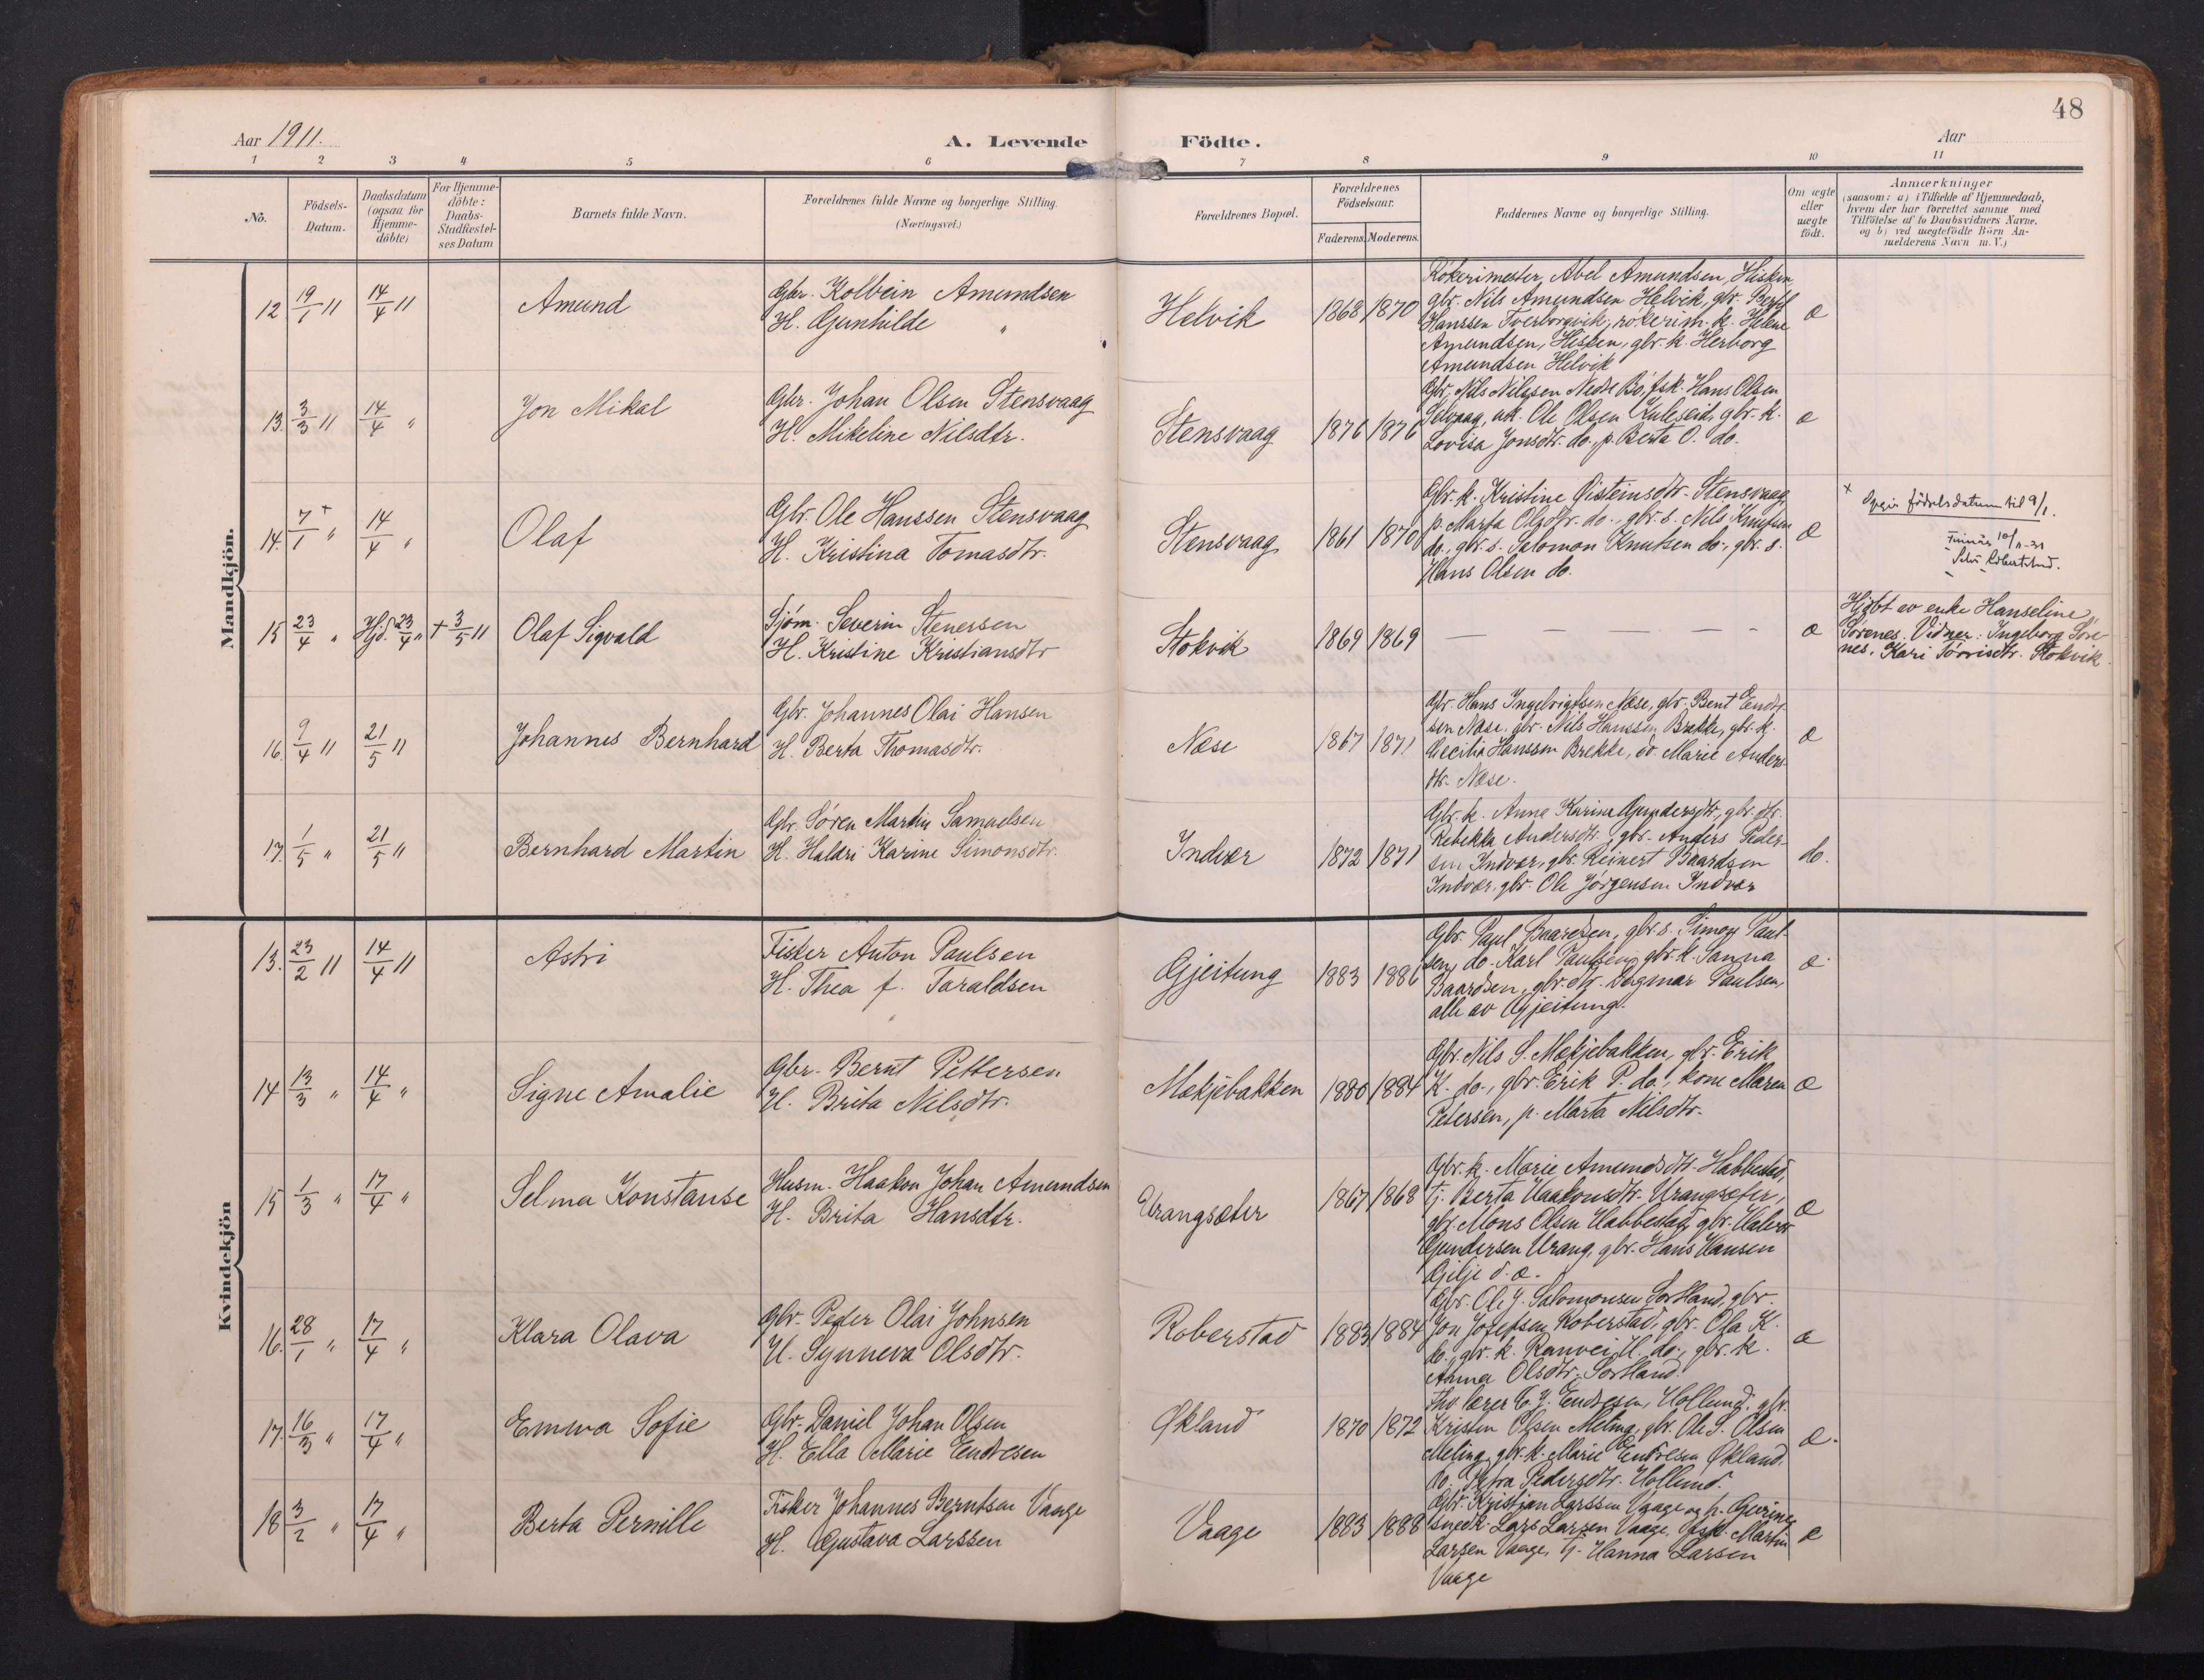 48
Aar 1911.
A. Levende Födte.
Aar
1 2 3 4 5 6 7 8 9 10 11
No.
Födsels-
Datum.
Daabsdatum
(ogsaa for
Hjemme-
döbte)
For Hjemme-
döbte:
Daabs-
Stadfæstel-
ses Datum
Barnets fulde Navn.
Forældrenes fulde Navne og borgerlige Stilling.
(Næringsvei.)
Forældrenes Bopæl.
Forældrenes
Födselsaar.
Faderens. Moderens.
Faddernes Navne og borgerlige Stilling.
Om ægte
eller
uægte
födt.
Anmærkninger
(saasom: a) i Tilfælde af Hjemmedaab,
hvem der har forrettet samme med
Tilföielse af to Daabsvidners Navne,
og b) ved uægtefödte Börn An-
melderens Navn m. V.)
Mandkjön.
12 19/1 11 14/4 11 Amund
Gbr. Kolbein Amundsen
H. Gunhilde "
Helvik 1868 1870
Rökerimester Abel Amundsen, Hisken,
gbr. Nils Amundsen Helvik, gbr. Bertel
Hanssen Tverborgvik, rökerim. k. Helene
Amundsen, Hisken, gbr. k. Herborg
Amundsen Helvik
æ
13. 3/3 11 14/4 " Jon Mikal
Gbr. Johan Olsen Stensvaag
H. Mikeline Nilsdtr.
Stensvaag 1876 1876
Gbr. Nils Nilssen Nedre Bö, fsk. Hans Olsen
Selvaag, uk. Ole Olsen Kuleseid, gbr. k.
Lovisa Jonsdtr. do., p. Berta O. do.
æ
14. 7/1 + " 14/4 " Olaf
Gbr. Ole Hanssen Stensvaag
H. Kristina Tomasdtr.
Stensvaag 1861 1870
Gbr. k. Kristine Øisteinsdtr. Stensvaag,
p. Marta Olsdtr. do., gbr. s. Nils Knutsen
do., gbr. s. Salomon Knutsen do., gbr. s.
Hans Olsen do.
æ
+ Opgir födselsdatum til 9/1.
15 23/4 " Hjd. 23/4 " + 3/5 11 Olaf Sigvald
Sjöm. Severin Stenersen
H. Kristine Kristiansdtr
Stokvik 1869 1869
— — — — —
æ
Hjdbt av enke Hanseline
Sörenes. Vidner: Ingeborg Söre
nes, Kari Törrisdtr. Stokvik.
16. 9/4 11 21/5 11 Johannes Bernhard
Gbr. Johannes Olai Hansen
H. Berta Thomasdtr.
Næse 1867 1871
Gbr. Hans Ingebrigtsen Næse, gbr. Bent Endre
sen Næse, gbr. Nils Hanssen Brekke, gbr. k.
Cecilia Hanssen Brekke, do. Marie Anders-
dtr. Næse.
æ
17. 1/5 " 21/5 11 Bernhard Martin
Gbr. Sören Martin Samuelsen
H. Haldri Karine Simonsdtr.
Indvær 1872 1871
Gbr. k. Anna Karina Gundersdtr., gbr. dtr.
Rebekka Andersdtr., gbr. Anders Peder-
sen Indvær, gbr. Reinert Baardsen
Indvær, gbr. Ole Jörgensen Indvær
do.
Kvindekjön
13. 23/2 11 14/4 11 Astri
Fisker Anton Paulsen
H. Thea f. Taraldsen
Gjeitung 1883 1886
Gbr. Paul Baardsen, gbr. s. Simon Paul-
sen, do. Karl Paulsen, gbr. k. Sanna
Baardsen, gbr. dtr. Dagmar Paulsen,
alle av Gjeitung.
æ
14 13/3 " 14/4 " Signe Amalie
Gbr. Bernt Pettersen
H. Brita Nilsdtr.
Mækjebakken 1880 1884
Gbr. Nils S. Mækjebakken, gbr. Erik
K. do., gbr. Erik P. do., kone Maren
Petersen, p. Marta Nilsdtr.
æ
15 1/3 " 17/4 " Selma Konstanse
Husm. Haakon Johan Amundsen
H. Brita Hansdtr.
Urangsæter 1867 1868
Gbr. k. Marie Amundsdtr. Habbestad,
tj. Berta Haakonsdtr. Urangsæter,
gbr. Mons Olsen Habbestad, gbr. Halvor
Gundersen Urang, gbr. Hans Hansen
Gilje d. æ.
æ
16. 28/1 " 17/4 " Klara Olava
Gbr. Peder Olai Johnsen
H. Synneva Olsdtr.
Roberstad 1883 1884
Gbr. Ole J. Salomonsen Sortland, gbr.
Jon Josefsen Roberstad, gbr. Ola K.
do., gbr. k. Ranvei H. do., gbr. k.
Anna Olsdtr. Sortland.
æ
17. 16/3 " 17/4 " Emma Sofie
Gbr. Daniel Johan Olsen
H. Ella Marie Endresen
Økland 1870 1872
lærer E. J. Endresen, Hollund, gbr.
Kristen Olsen Meling, gbr. Ole S. Olsen
Meling, gbr. k. Marie Endresen Økland,
do. Petra Pedersdtr. Hollund.
æ.
18 3/2 " 17/4 " Berta Pernille
Fisker Johannes Berntsen Vaage
H. Gustava Larssen
Vaage 1883 1888
Gbr. Kristian Larssen Vaage og h. Gurine,
snedk. Lars Larsen Vaage, fsk. Martin
Larsen Vaage, tj. Hanna Larsen
Vaage
æ